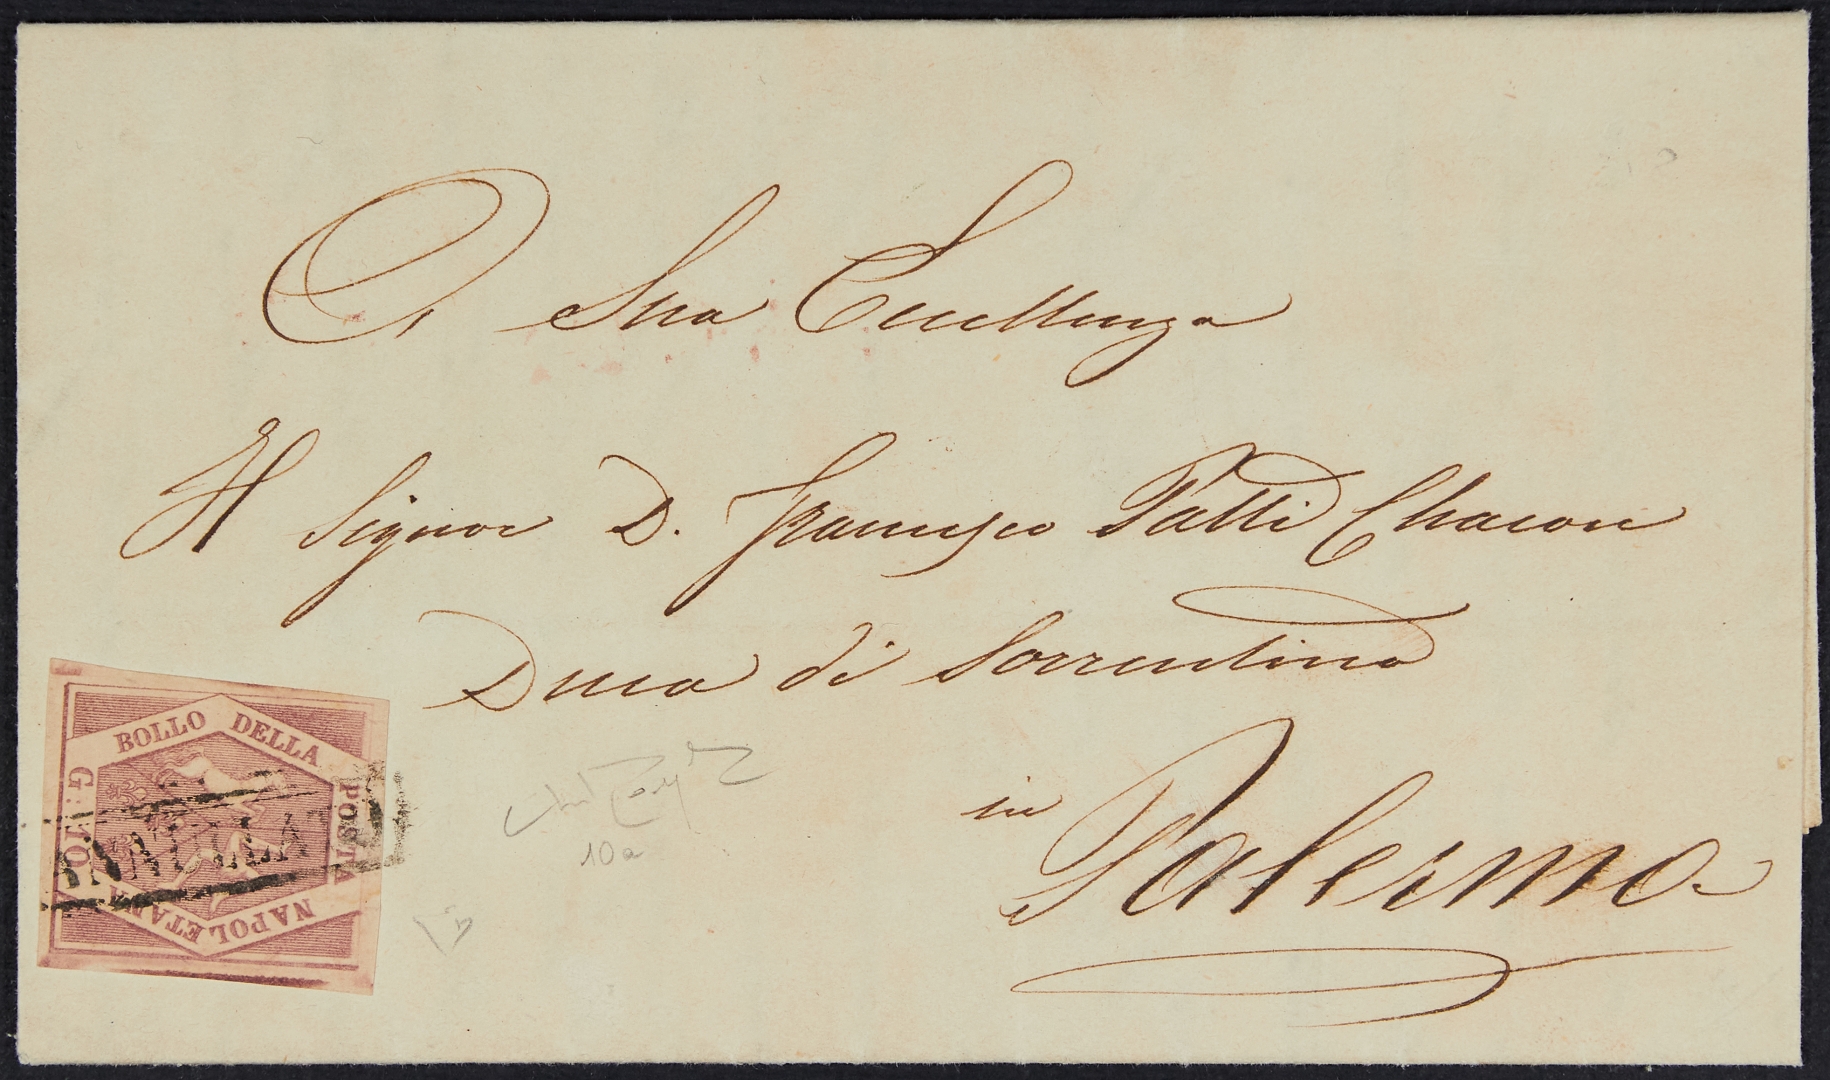 A Sua Eccellenza
Al Signor D. Francesco Patti Chacon
Duca di Sorrentino
in
Palermo
BOLLO DELLA
POSTA
NAPOLETANA
G. 10
ANNULLATO
10a